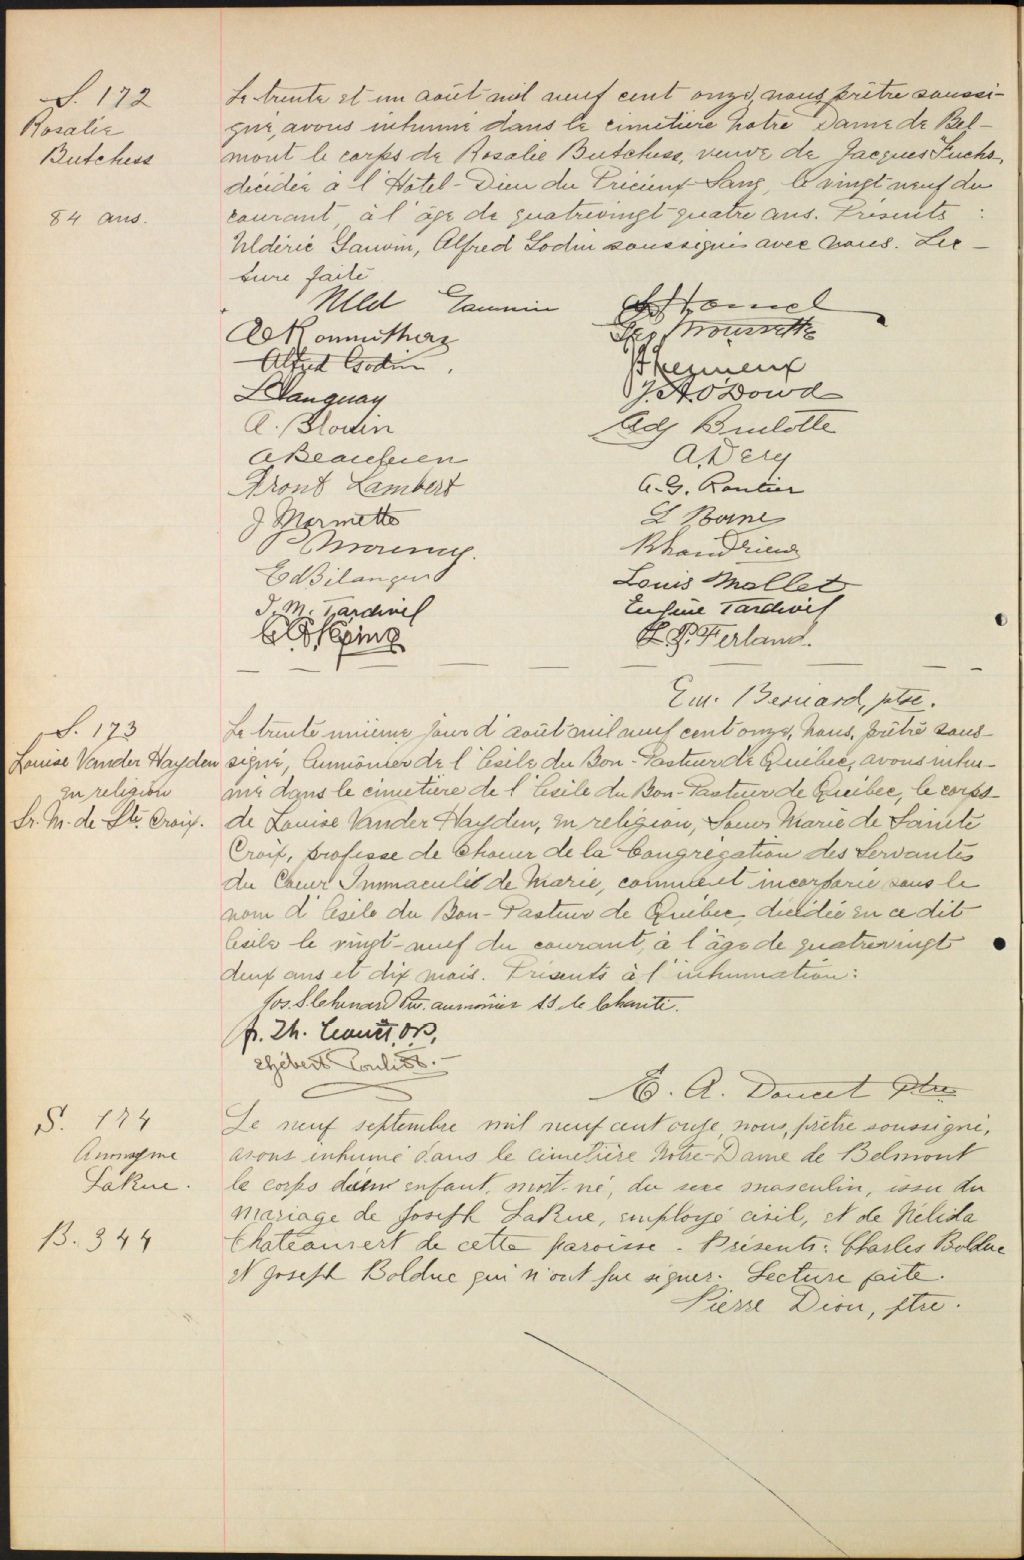 S. 172
Rosalie
Butchess
84 ans.
Le trente et un août mil neuf cent onze, nous, prêtre soussi-
gné, avons inhumé dans le cimetière Notre Dame de Bel-
mont le corps de Rosalie Butchess, veuve de Jacques Fuchs,
décédée à l'Hôtel-Dieu du Précieux-Sang, le vingt neuf du
courant, à l'âge de quatrevingt-quatre ans. Présents :
Uldéric Gauvin, Alfred Godin soussignés avec nous. Lec-
ture faite
Uld Gauvin
Geo. Moussette
Alfred Godin
L Languay
J. A. O'Dowd
A. Blouin
Adj Brulotte
A Beaulieu
A. Dery
Front Lambert
A. G. Routier
J Marmette
Ed Bélanger
Louis Mollet
J. M. Tardivel
Eugène Tardivel
L. P. Ferland.
Em. Bernard, ptre.
S. 173
Louise Vander Hayden
en religion
Sr. M. de Ste. Croix.
Le trente unième jour d'août mil neuf cent onze, Nous, prêtre sous-
signé, Aumônier de l'Asile du Bon-Pasteur de Québec, avons inhu-
mé dans le cimetière de l'Asile du Bon-Pasteur de Québec, le corps
de Louise Vander Hayden, en religion, Soeur Marie de Sainte
Croix, professe de choeur de la Congrégation des Servantes
du Coeur Immaculé de Marie, connue et incorporée sous le
nom d'Asile du Bon-Pasteur de Québec, décédée en ce dit
Asile le vingt-neuf du courant, à l'âge de quatrevingt
deux ans et dix mois. Présents à l'inhumation:
Jos. S. Chenard Ptr. aumônier SS de Charité.
fr. Th. Couët, O.P.,
E. A. Doucet Ptre
S. 174
Anonyme
LaRue.
B. 344
Le neuf septembre mil neuf cent onze, nous, prêtre soussigné,
avons inhumé dans le cimetière Notre-Dame de Belmont
le corps d'un enfant, mort-né, du sexe masculin, issu du
mariage de Joseph LaRue, employé civil, et de Nélida
Chateauvert de cette paroisse. Présents: Charles Bolduc
et Joseph Bolduc qui n'ont su signer. Lecture faite.
Pierre Dion, ptre.